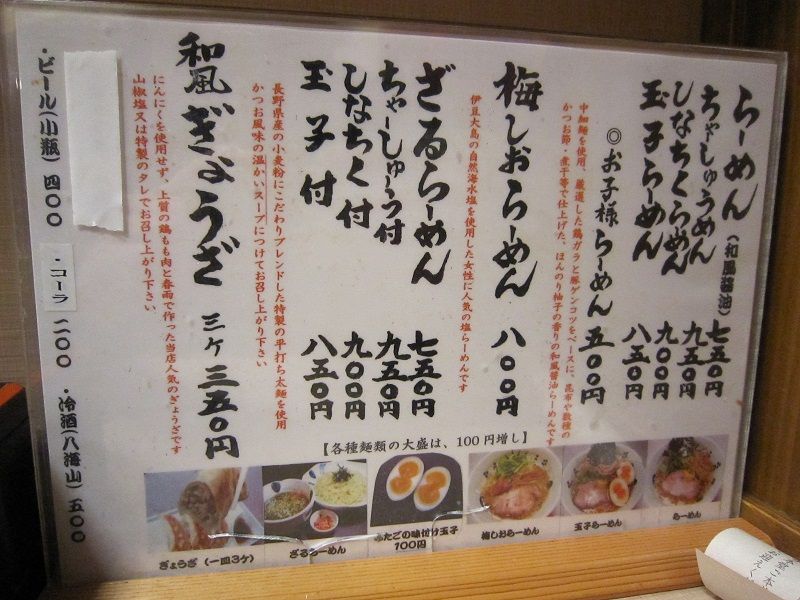 らーめん（和風醤油） 七五〇円
ちゃーしゅうめん 九五〇円
しなちくらーめん 九〇〇円
玉子らーめん 八五〇円
◎お子様らーめん 五〇〇円
中細麺を使用、厳選した鶏ガラと豚ゲンコツをベースに、昆布や数種の
かつお節・煮干等で仕上げた、ほんのり柚子の香りの和風醤油らーめんです
梅しおらーめん 八〇〇円
伊豆大島の自然海水塩を使用した女性に人気の塩らーめんです
ざるらーめん 七五〇円
ちゃーしゅーう付 九五〇円
しなちく付 九〇〇円
玉子付 八五〇円
長野県産の小麦粉にこだわりブレンドした特製の平打ち太麺を使用
かつお風味の温かいスープにつけてお召し上がり下さい
和風ぎょうざ 三ケ 三五〇円
にんにくを使用せず、上質の鶏もも肉と春雨で作った当店人気のぎょうざです
山椒塩又は特製のタレでお召し上がり下さい
・ビール（小瓶）四〇〇
・コーラ 二〇〇
・冷酒（八海山）五〇〇
【各種麺類の大盛は、100円増し】
ぎょうざ（一皿3ケ）
ざるらーめん
ふたごの味付け玉子
100円
梅しおらーめん
玉子らーめん
らーめん